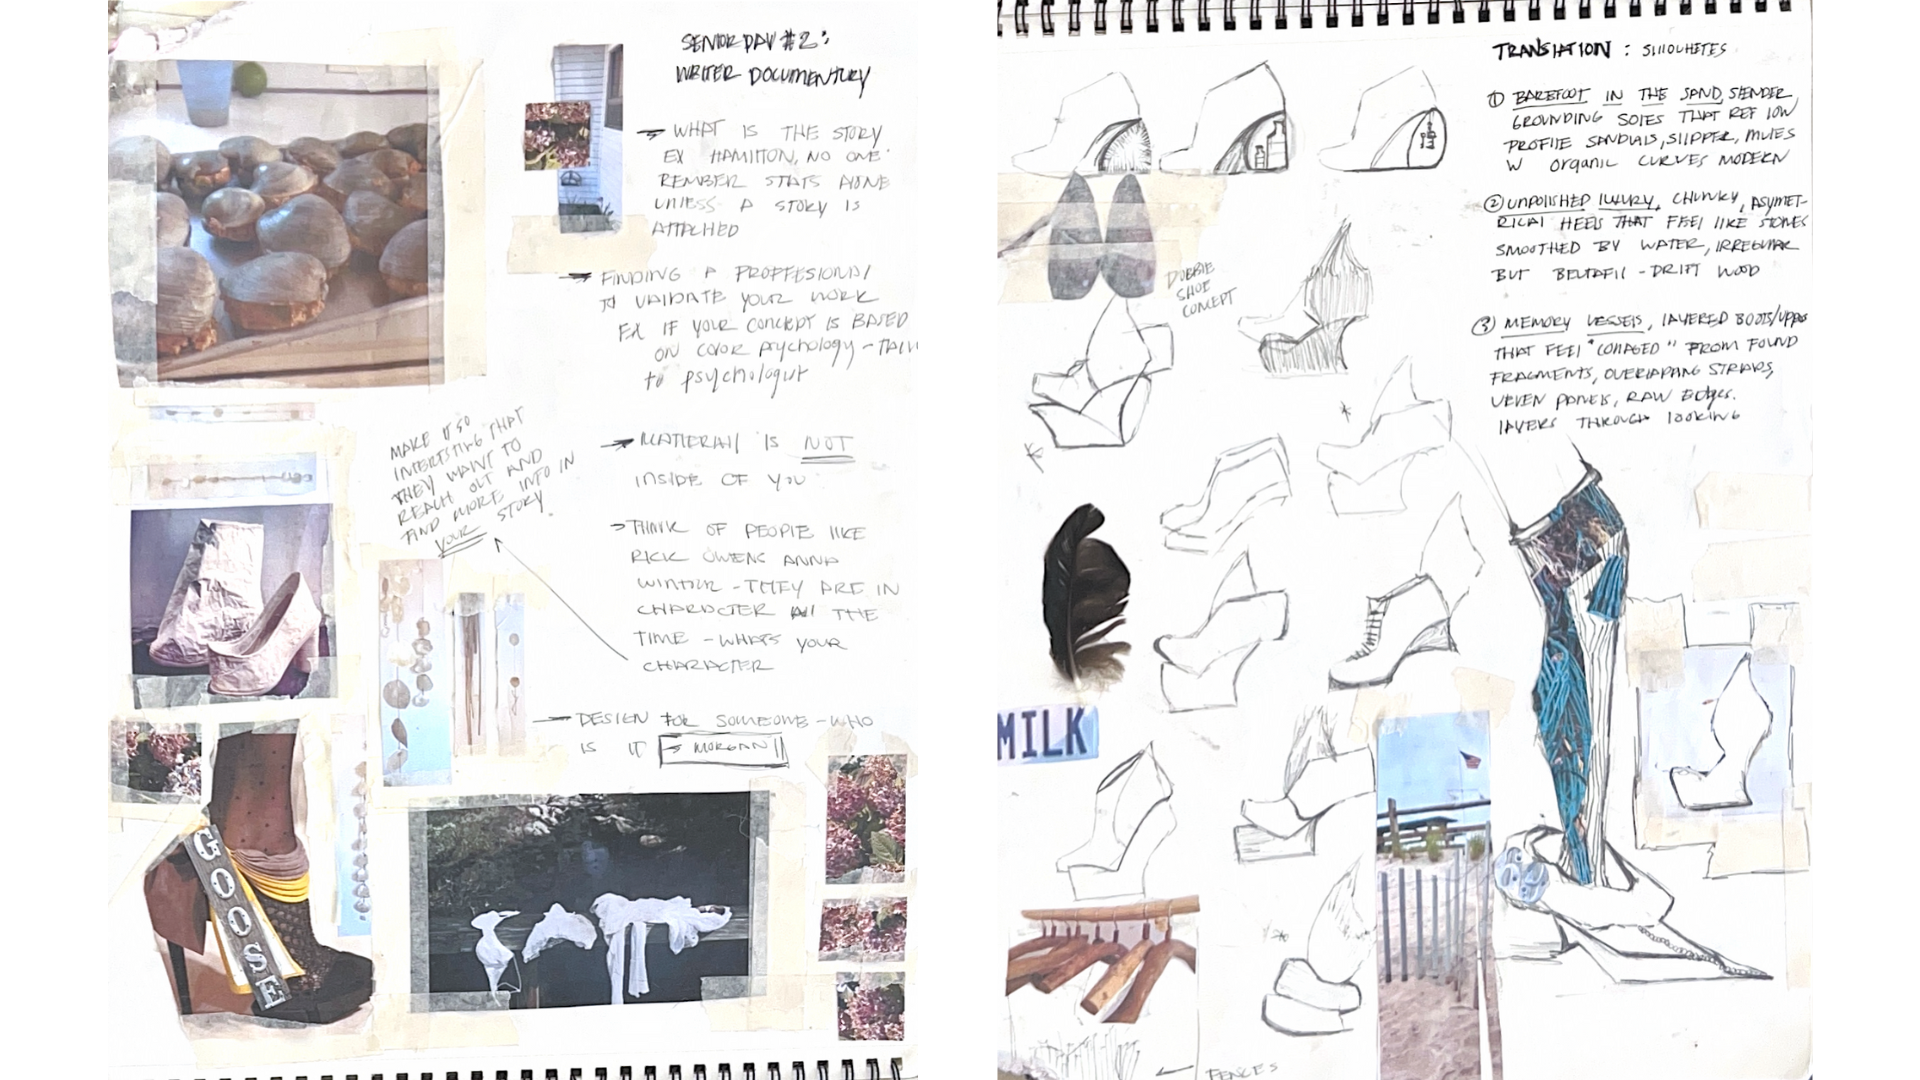 SENIOR DAY #2:
WRITER DOCUMENTURY
WHAT IS THE STORY
EX HAMILTON, NO ONE
REMBER STATS ALONE
UNLESS A STORY IS
ATTACHED
FINDING A PROFFESIONAL
TO VALIDATE YOUR WORK
EX IF YOUR CONCEPT IS BASED
ON COLOR psychology - TALK
to psychologist
MAKE IT SO
INTERESTING THAT
THEY WANT TO
REACH OUT AND
FIND MORE INFO IN
YOUR STORY.
MATERIAL IS NOT
INSIDE OF YOU
THINK OF PEOPLE LIKE
RICK OWENS ANNA
WINTOUR - THEY ARE IN
CHARACTER All THE
TIME - WHATS YOUR
CHARACTER
DESIGN FOR SOMEONE - WHO
IS IT → MORGAN
GOOSE
TRANSLATION: SILLOUHETES
① BAREFOOT IN THE SAND, SLENDER
GROUNDING SOLES THAT REF LOW
PROFILE SANDALS, SLIPPER, MULES
W ORGANIC CURVES MODERN
② UNPOLISHED LUXURY, CHUNKY, ASYMET-
RICAL HEELS THAT FEEL LIKE STONES
SMOOTHED BY WATER, IRREGULAR
BUT BEUTAFIL - DRIFT WOOD
③ MEMORY VESSELS, LAYERED BOOTS/UPPERS
THAT FEEL "COLLAGED" FROM FOUND
FRAGMENTS, OVERLAPPING STRAPS,
UEVEN PANELS, RAW Edges.
LAYERS THROUGH looking
DUBBLE
SHOE
CONCEPT
MILK
FENCES